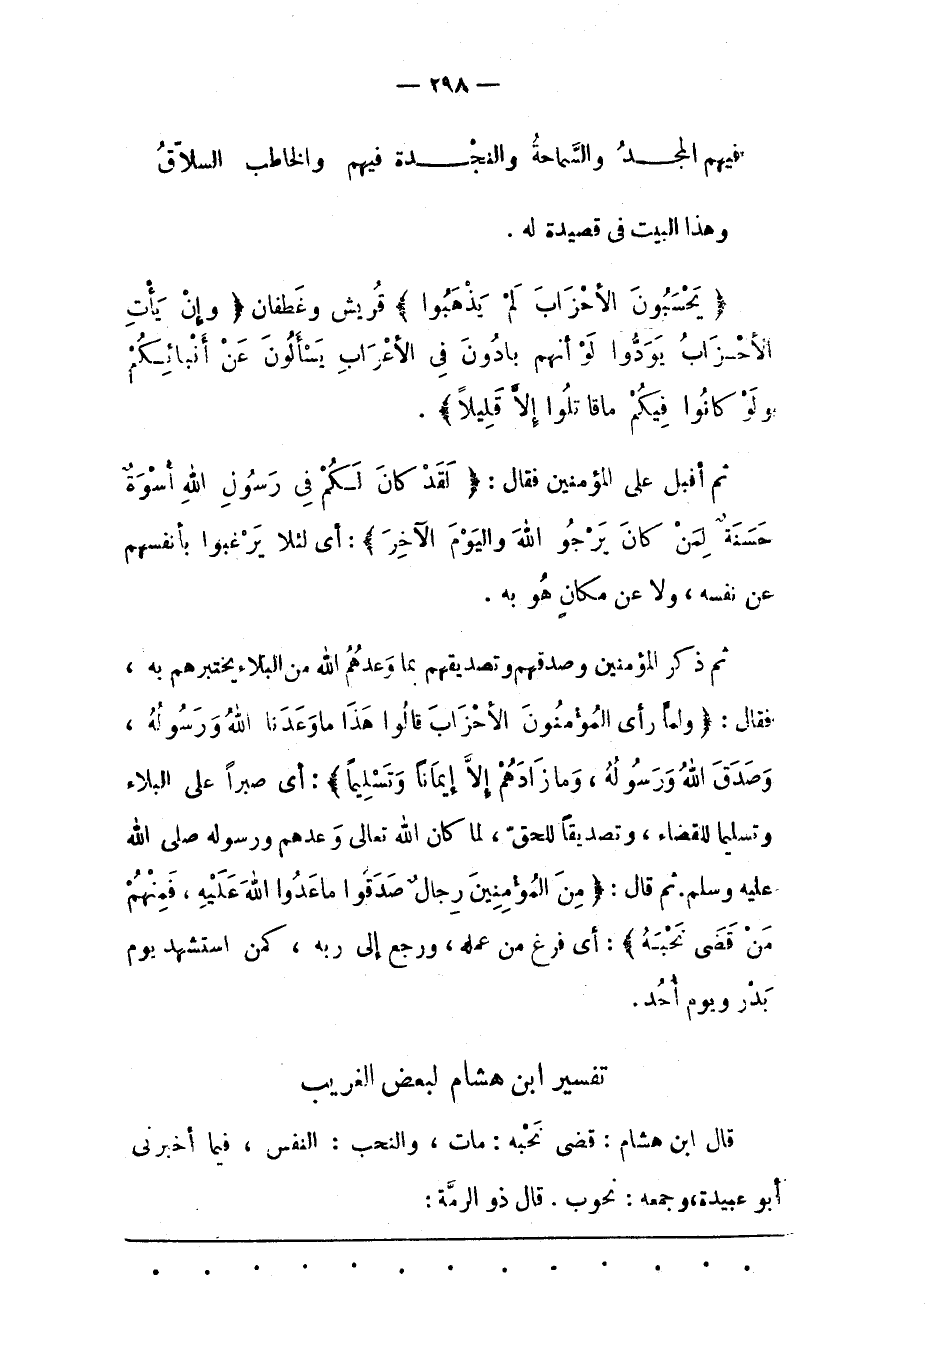 — ٢٩٨ —
فيهم المجـــدُ والسَّماحةُ والنجْـــدة فيهم والخاطب السلاّقُ
وهذا البيت فى قصيدة له .
﴿ يَحْسَبُونَ الأحْزَابَ لَمْ يَذْهَبُوا ﴾ قُريش وغَطفان ﴿ وإنْ يَأْتِ
الأحْـزابُ يَوَدُّوا لَوْ أنهم بادُونَ فِى الأعْرَابِ يَسْألُونَ عَنْ أَنْبائِـكُمْ
ولَوْ كانُوا فِيكُمْ ماقاتلُوا إلاَّ قَلِيلاً ﴾ .
ثم أقبل على المؤمنين فقال : ﴿ لَقَدْ كانَ لَـكُمْ فِى رَسُولِ اللهِ أُسْوَةٌ
حَسَنَةٌ لِمَنْ كانَ يَرْجُو اللهَ واليَوْمَ الآخِرَ ﴾ : أى لئلا يَرْغبوا بأنفسهم
عن نفسه ، ولا عن مكانٍ هُو به .
ثم ذكر المؤمنين وصدقهم وتصديقهم بما وَعدهُمُ الله من البلاء يختبرهم به ،
فقال : ﴿ ولماَّ رأى المُؤمنُونَ الأحْزَابَ قالُوا هَذَا ماوَعَدَنا اللهُ وَرَسُولُهُ ،
وَصَدَقَ اللهُ وَرَسُولُهُ ، وَمازَادَهُمْ إلاَّ إيمَاناً وَتَسْلِيماً ﴾ : أى صبراً على البلاء
وتسليما للقضاء ، وتصديقاً للحقّ ، لما كان الله تعالى وَعدهم ورسوله صلى الله
عليه وسلم. ثم قال : ﴿ مِنَ المُؤمِنِينَ رِجالٌ صَدَقُوا ماعَدُوا اللهَ عَلَيْهِ ، فَمِنْهُمْ
مَنْ قَضَى نَحْبَهُ ﴾ : أى فرغ من عمله ، ورجع إلى ربه ، كمن استشهد يوم
بَدْر ويوم أُحُد .
تفسير ابن هشام لبعض الغريب
قال ابن هشام : قضى نَحْبه : مات ، والنحب : النفس ، فيما أخبرنى
أبو عبيدة، وجمعه : نحوب . قال ذو الرمَّة :
. . . . . . . . . . . . .